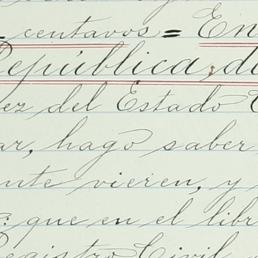 = centavos = En
República, de
ez del Estado C
ar, hago saber
nte vieren, y
: que en el libr
Registro Civil